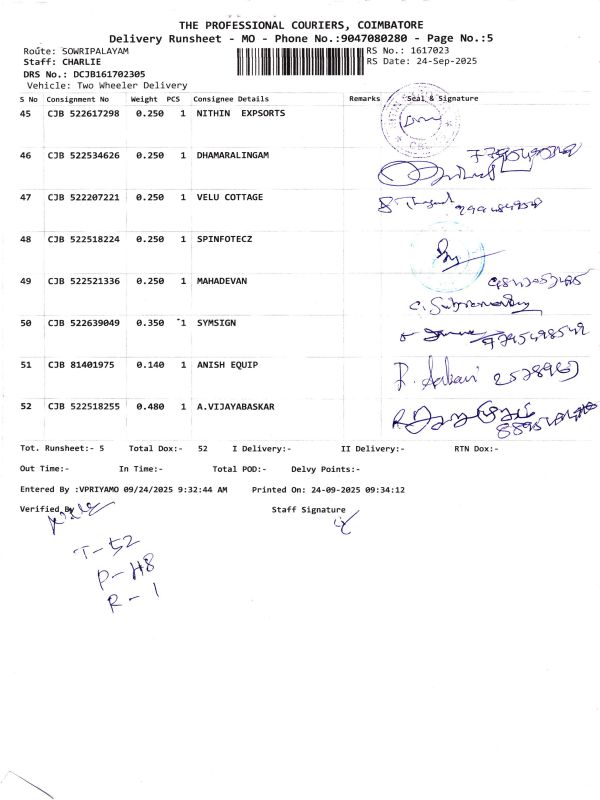 THE PROFESSIONAL COURIERS, COIMBATORE
Delivery Runsheet - MO - Phone No.:9047080280 - Page No.:5
Route: SOWRIPALAYAM RS No.: 1617023
Staff: CHARLIE RS Date: 24-Sep-2025
DRS No.: DCJB161702305
Vehicle: Two Wheeler Delivery
S No Consignment No Weight PCS Consignee Details Remarks Seal & Signature
45 CJB 522617298 0.250 1 NITHIN EXPSORTS
46 CJB 522534626 0.250 1 DHAMARALINGAM
47 CJB 522207221 0.250 1 VELU COTTAGE
48 CJB 522518224 0.250 1 SPINFOTECZ
49 CJB 522521336 0.250 1 MAHADEVAN
50 CJB 522639049 0.350 1 SYMSIGN
51 CJB 81401975 0.140 1 ANISH EQUIP
52 CJB 522518255 0.480 1 A.VIJAYABASKAR
Tot. Runsheet:- 5 Total Dox:- 52 I Delivery:- II Delivery:- RTN Dox:-
Out Time:- In Time:- Total POD:- Delvy Points:-
Entered By :VPRIYAMO 09/24/2025 9:32:44 AM Printed On: 24-09-2025 09:34:12
Verified By Staff Signature
T- 52
P- 48
R - 1